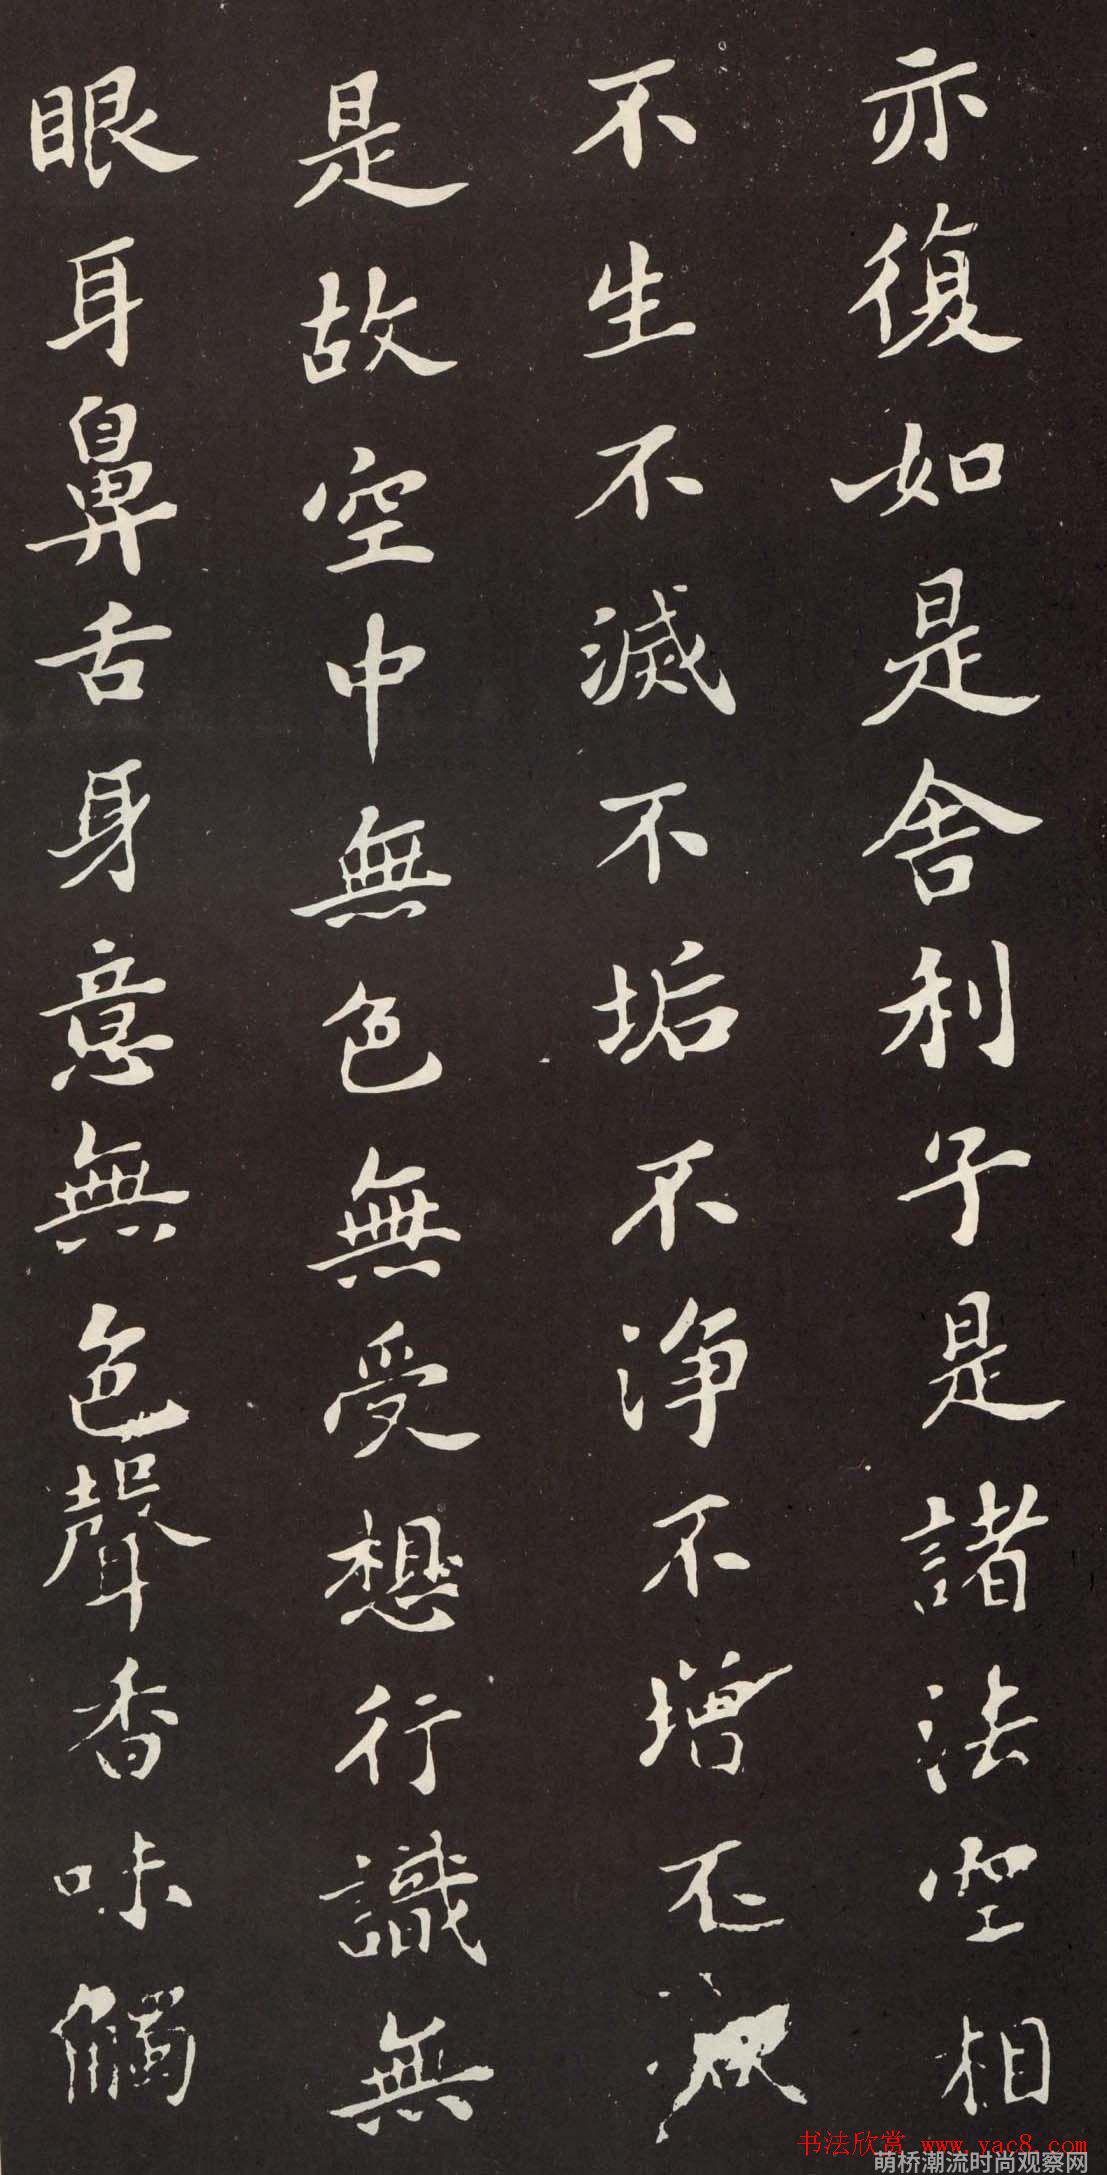 亦復如是舍利子是諸法空相
不生不滅不垢不淨不增不減
是故空中無色無受想行識無
眼耳鼻舌身意無色聲香味觸
书法欣赏 www.yac8.com
萌桥潮流时尚观察网